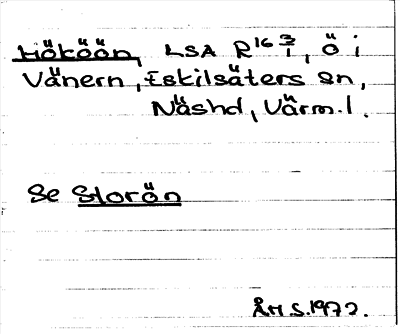 Hököön, LSA R16 3/1, ö i
Vänern, Eskilsäters sn,
Näshd, Värm.l.
Se Storön
ÅH S.1972.